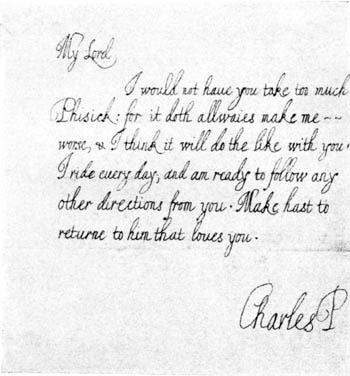 My Lord
I would not haue you take too much
Phisick: for it doth allwaies make me --
worse, & I think it will do the like with you.
I ride every day, and am ready to follow any
other directions from you. Make hast to
returne to him that loues you.
Charles P